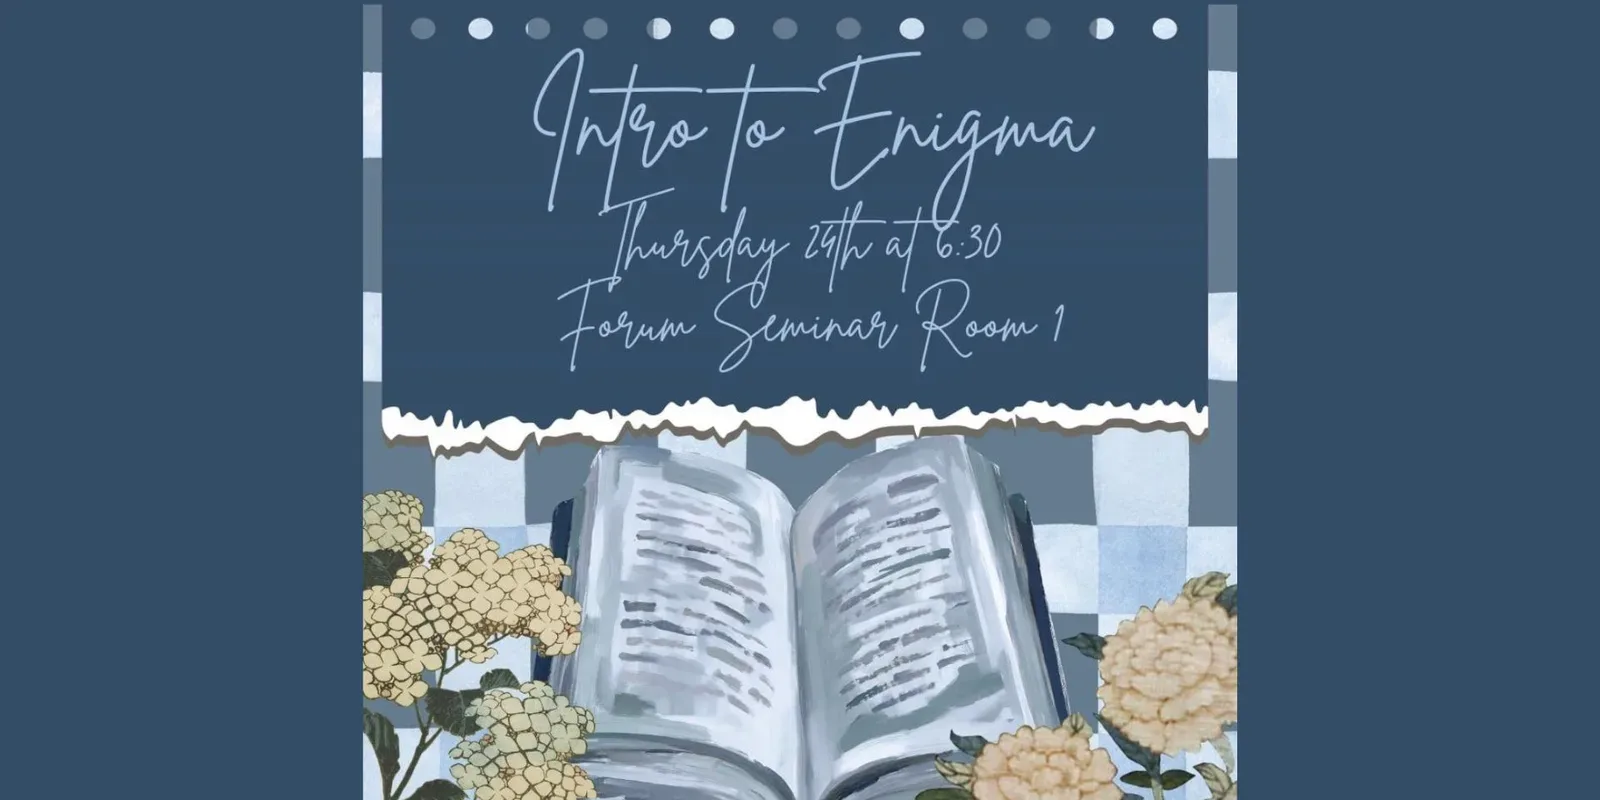 Intro to Enigma
Thursday 24th at 6:30
Forum Seminar Room 1